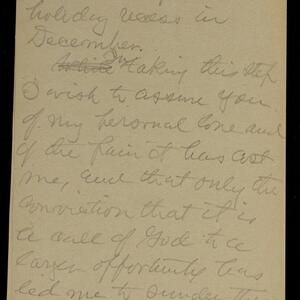 holiday recess in
December.
While In taking this step
I wish to assure you
of my personal love and
of the pain it has cost
me, and that only the
conviction that it is
a call of God to a
larger opportunity has
led me to sunder the